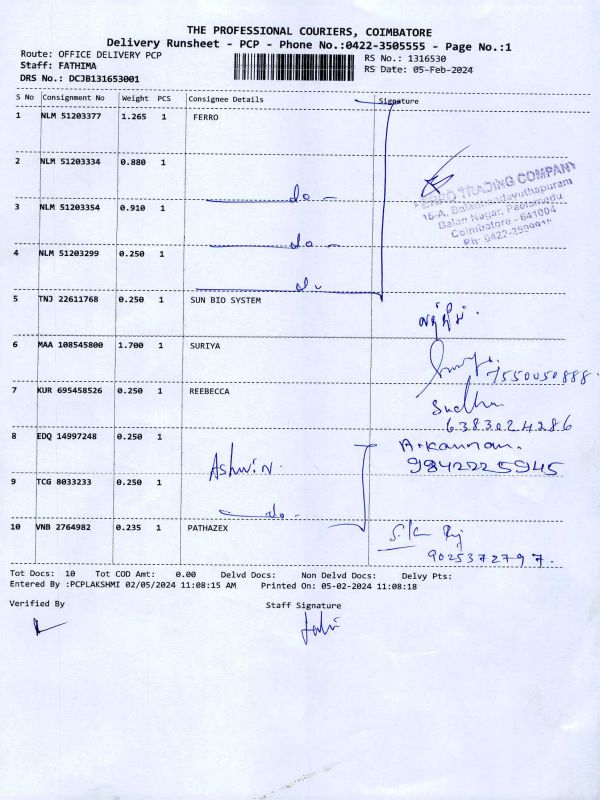 THE PROFESSIONAL COURIERS, COIMBATORE
Delivery Runsheet - PCP - Phone No.:0422-3505555 - Page No.:1
Route: OFFICE DELIVERY PCP
RS No.: 1316530
Staff: FATHIMA
RS Date: 05-Feb-2024
DRS No.: DCJB131653001
S No Consignment No Weight PCS Consignee Details Signature
1 NLM 51203377 1.265 1 FERRO
2 NLM 51203334 0.880 1
do -
TRADING COMPANY
Balan Nagar, Peelamedu
Coimbatore - 641004
3 NLM 51203354 0.910 1
do -
4 NLM 51203299 0.250 1
do
5 TNJ 22611768 0.250 1 SUN BIO SYSTEM
6 MAA 108545800 1.700 1 SURIYA
7550050888
7 KUR 695458526 0.250 1 REEBECCA
Sudha
6383024286
8 EDQ 14997248 0.250 1
Ashwin.
A. Kannan.
9842225945
9 TCG 8033233 0.250 1
do -
10 VNB 2764982 0.235 1 PATHAZEX
9025372797.
Tot Docs: 10 Tot COD Amt: 0.00 Delvd Docs: Non Delvd Docs: Delvy Pts:
Entered By :PCPLAKSHMI 02/05/2024 11:08:15 AM Printed On: 05-02-2024 11:08:18
Verified By Staff Signature